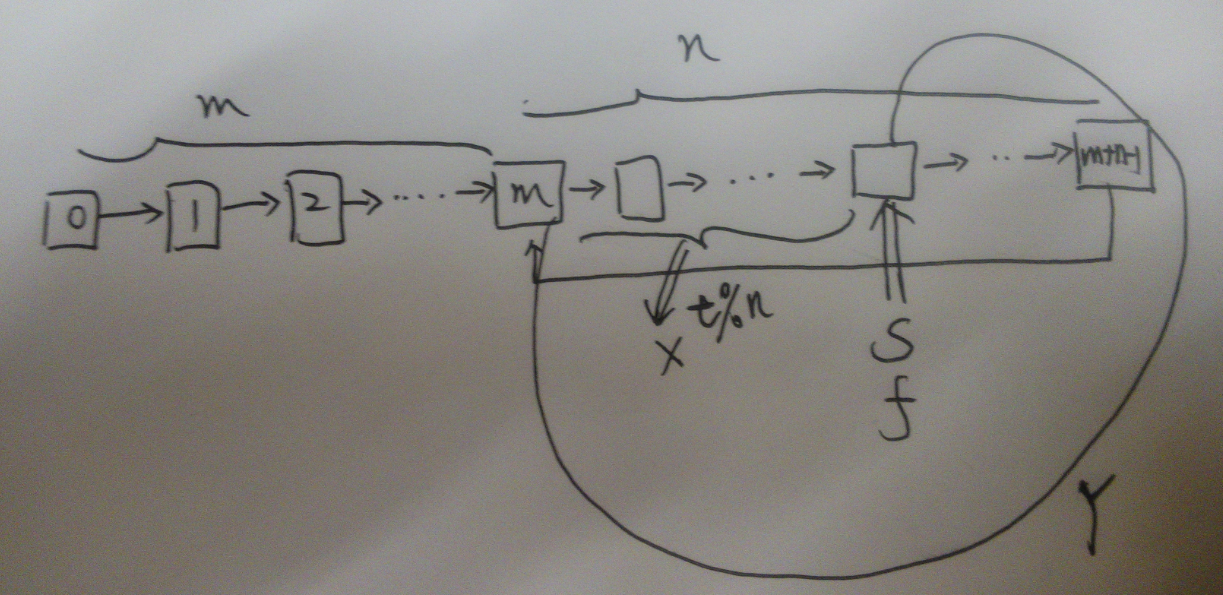 n
m
0 1 2 .... m ... .. m+n-1
t%n
X
S
f
Y